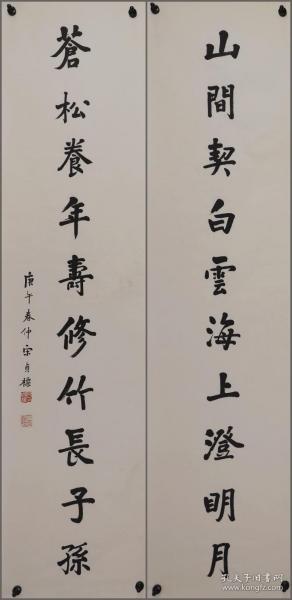 山間契白雲海上澄明月
蒼松養年壽修竹長子孫
庚午春仲宗貞
孔夫子旧书网